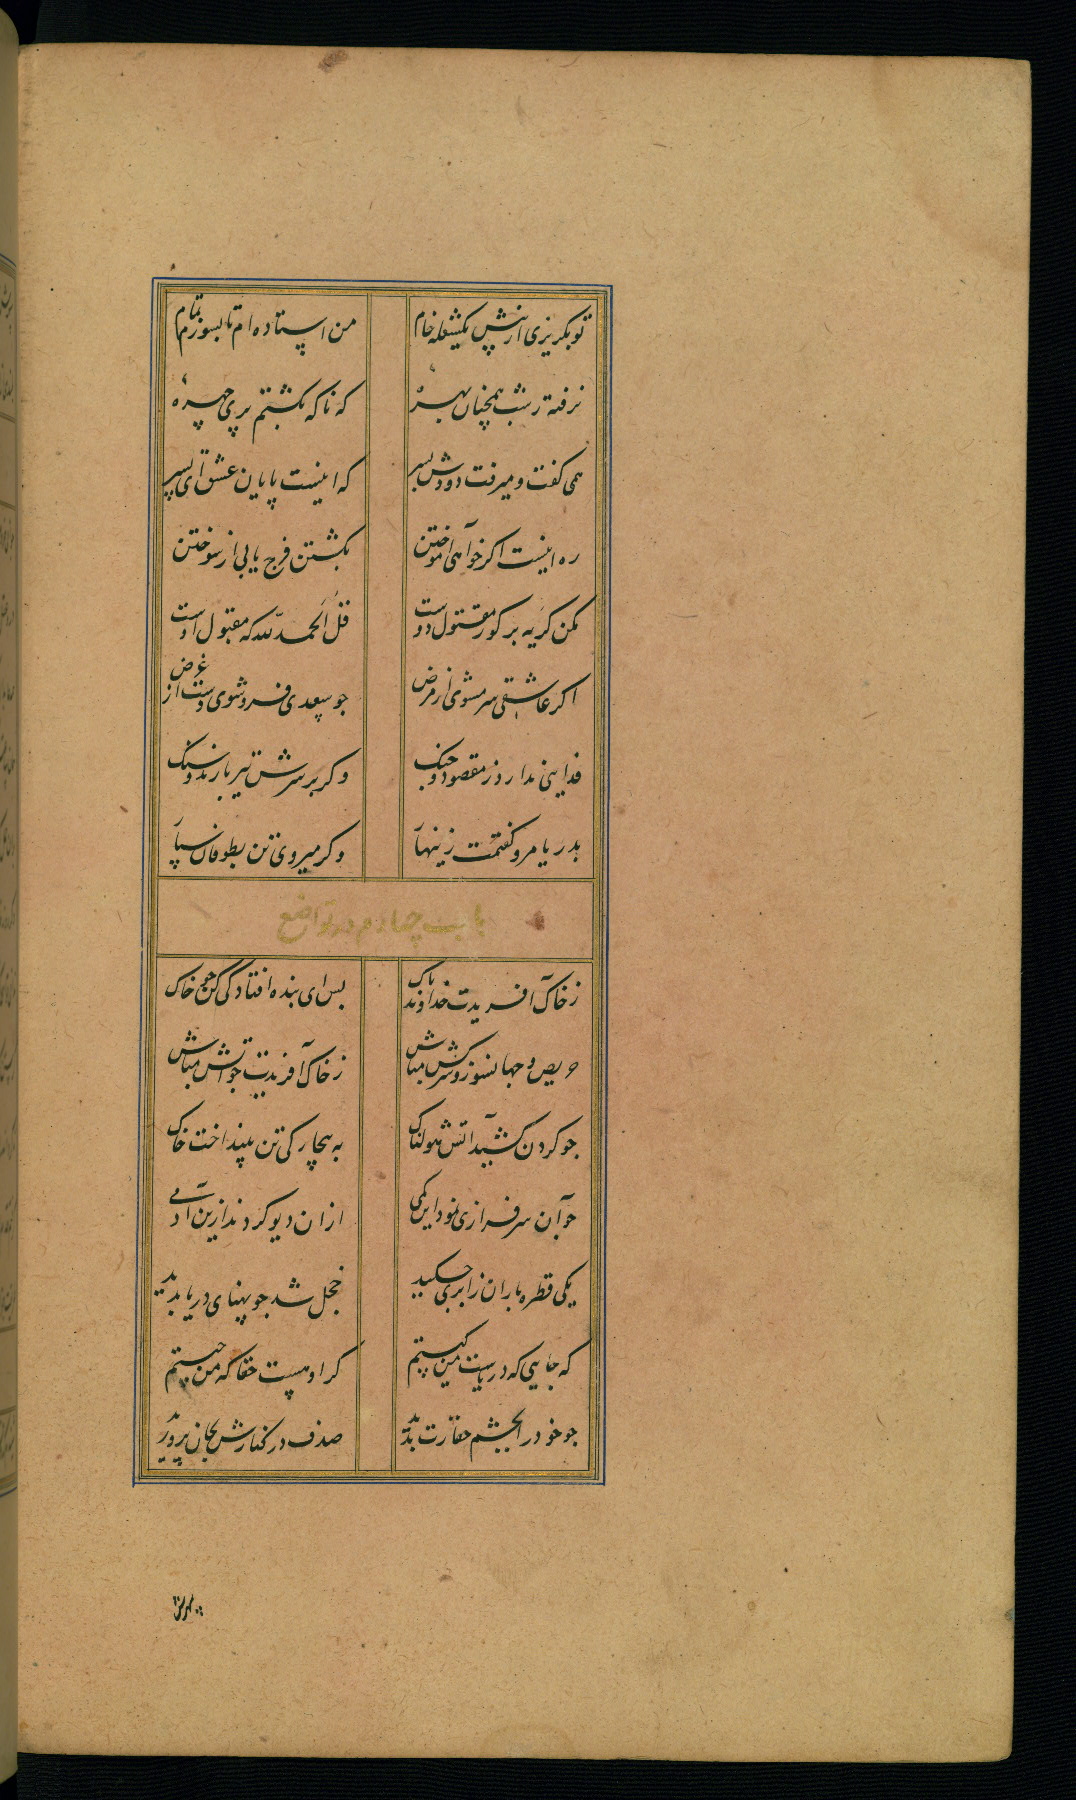 تو بگریزی از پیش یکشعله خام من استاده ام تا بسوزم تمام
نرفته ز شب همچنان بهرهٔ که ناکه بکشتم پری چهرهٔ
همی کفت و میرفت دودش بسر که اینست پایان عشق ای پسر
ره اینست اکر خواهی آموختن بکشتن فرج یابی از سوختن
مکن کریه بر کور مقتول دوست قل الحمد لله که مقبول اوست
اکر عاشقی سر مشوی از مرض جو سعدی فرو شوی دست از غرض
فدایی ندارد ز مقصود جنک و کر بر سرش تیر بارند و سنک
بدریا مرو کفتمت زینهار و کر میروی تن بطوفان سپار
باب چهارم در تواضع
ز خاک آفریدت خداوند پاک بس ای بنده افتادگی کن جو خاک
حریص و جهانسوز و سرکش مباش ز خاک آفریدت جو آتش مباش
جو کردن کشید آتش هولناک به بیچارکی تن بینداخت خاک
جو آن سرفرازی نمود این کمی ازان دیو کردند ازین آدمی
یکی قطره باران ز ابری جکید خجل شد جو پهنای دریا بدید
که جاییکه دریاست من کیستم کر او هست حقا که من نیستم
جو خود را بجشم حقارت بدید صدف در کنارش بجان پرورید